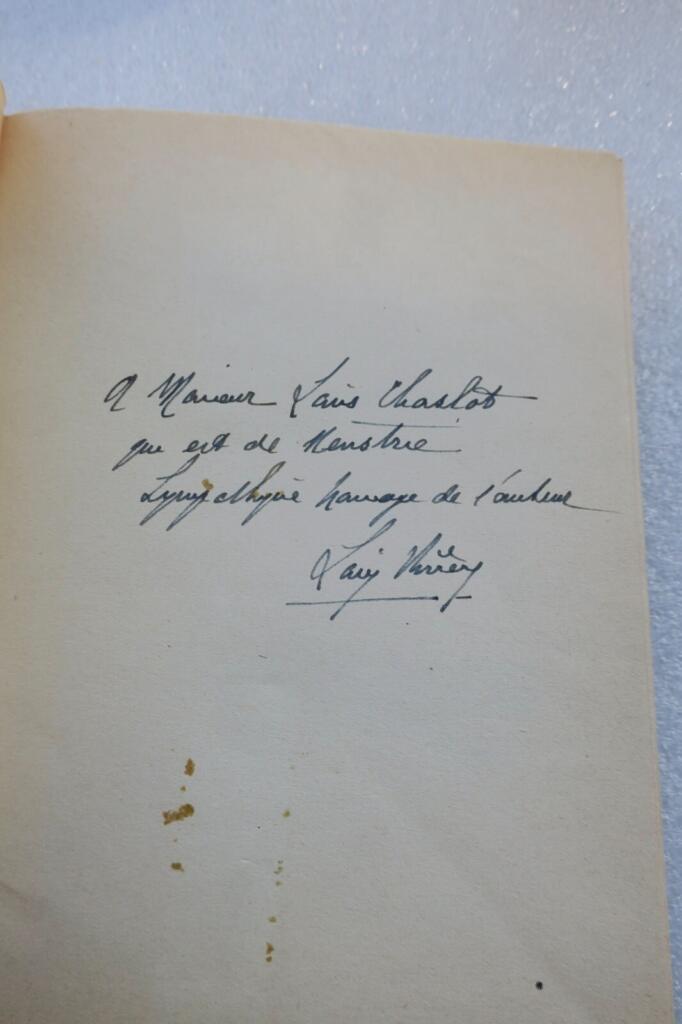 A Monsieur Louis Chaslot
qui est de Neustrie
Sympathique hommage de l'auteur
Louis